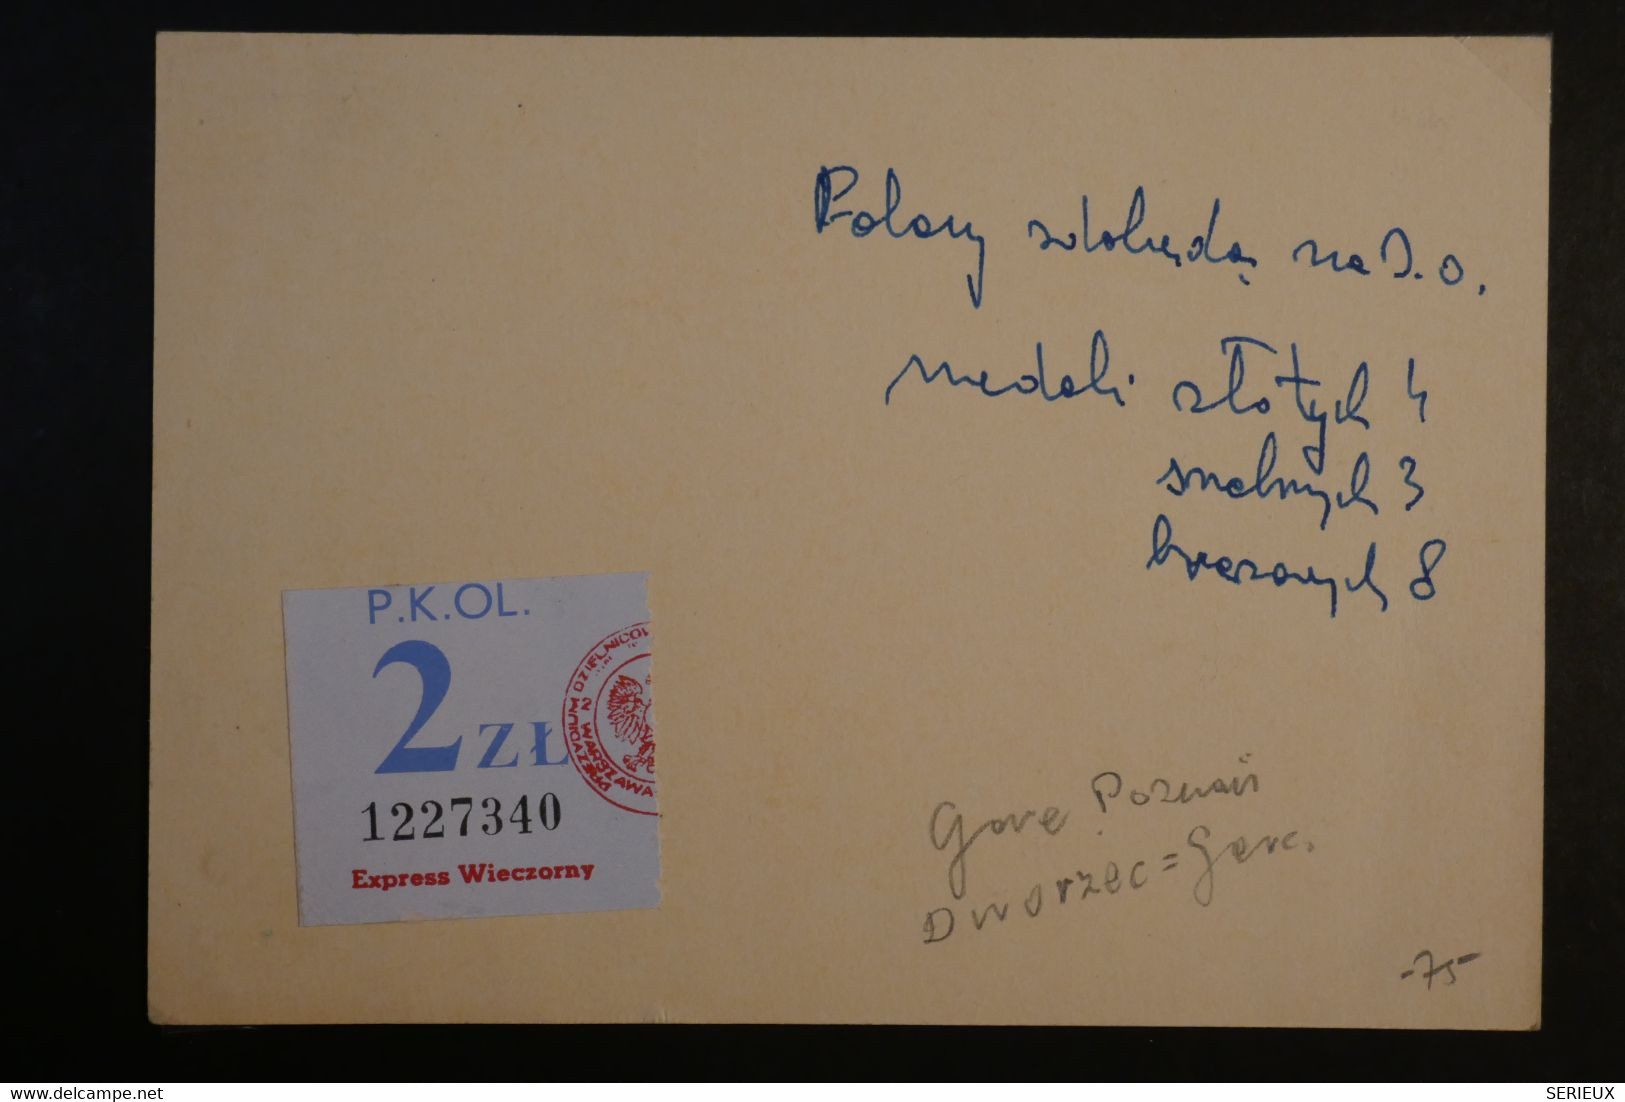 Polacy zdobędą na I.O.
medali złotych 4
srebrnych 3
brązowych 8
P.K.OL.
2 ZŁ
1227340
Express Wieczorny
PREZYDIUM DZIELNICOW
2 WARSZAWA
Gare Poznań
Dworzec = Gare.
-75-
delcampe.net
SERIEUX